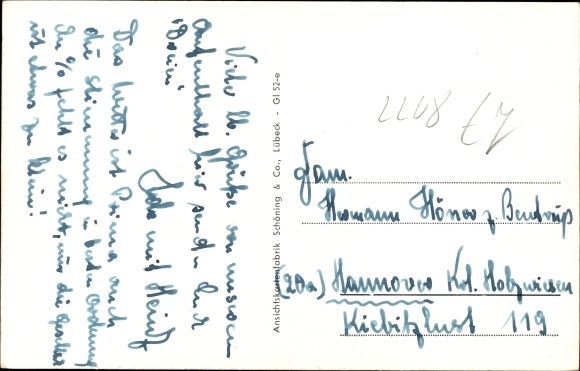 Viele lb. Grüße von unserem
Aufenthalt hier senden Euch
"Dorien"
Ida mit Heinz
Das Wetter ist Prima auch
die Stimmung in bester Ordnung
An % fehlt es nicht, nur die Gesellen
ist etwas zu klein!
Ansichtskartenfabrik Schöning & Co., Lübeck - Gl 52-e
2208 £7
Fam.
Hermann Höner z. Bentrup
(20a.) Hannover Kol. Holzwiesen
Kiebitzlust 119